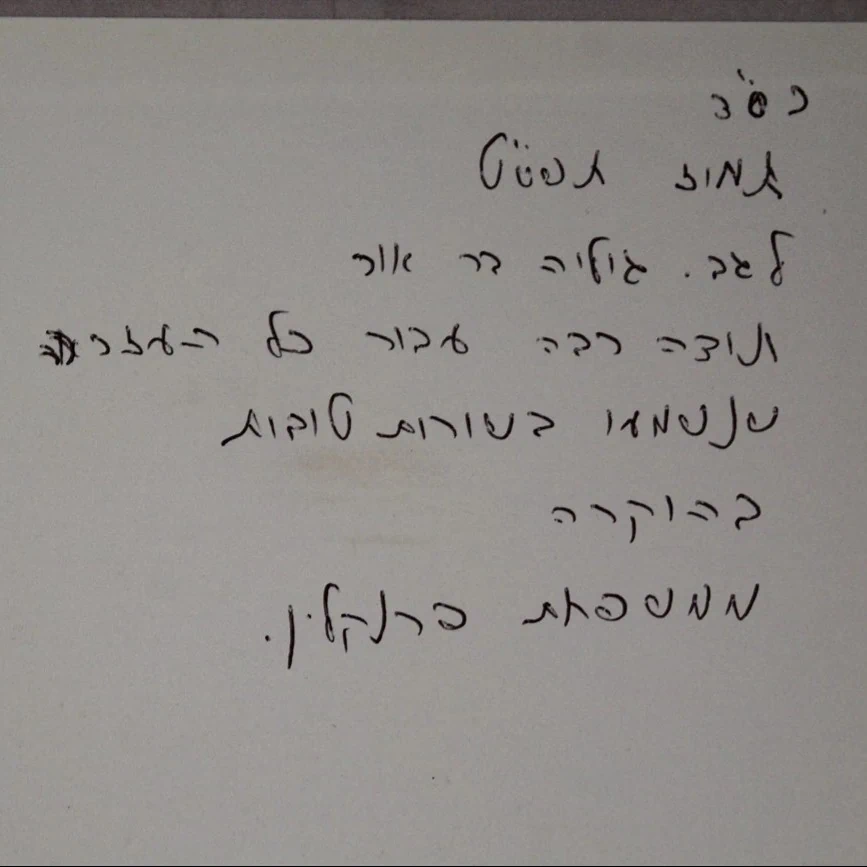 בס"ד
תמוז תשע"ט
לגב. ג'וליה בר אור
תודה רבה עבור כל העזרה
שנשמע בשורות טובות
בהוקרה
ממשפחת פרנקלין.